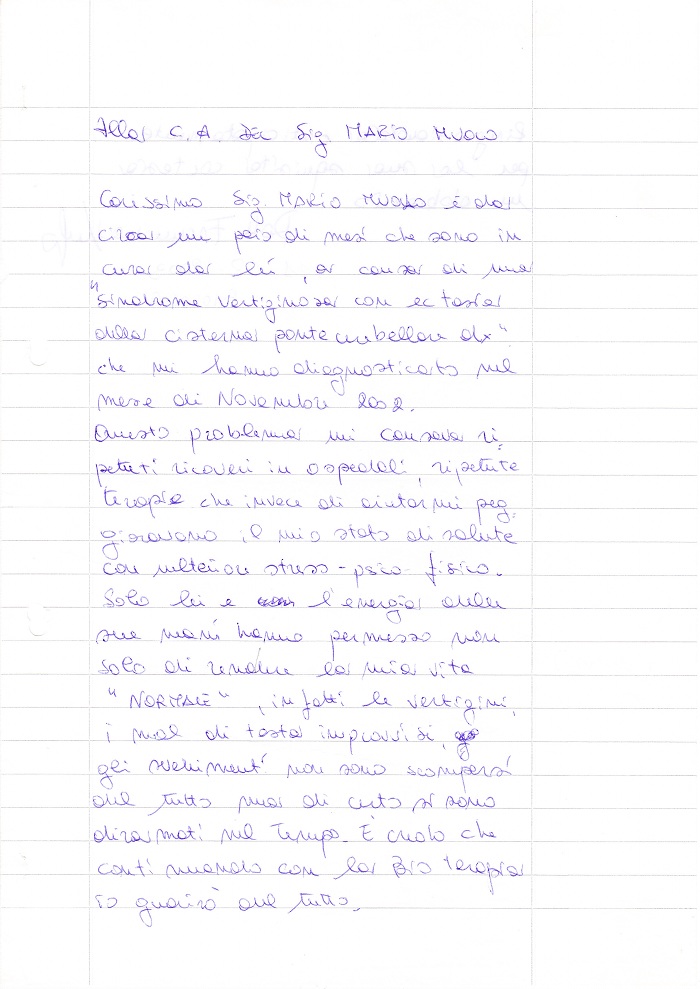 Alla C.A. Del Sig. MARIO MUOLO
Carissimo Sig. MARIO MUOLO è da
circa un paio di mesi che sono in
cura da lei, a causa di una
"Sindrome Vertiginosa con ectasia
della cisterna pontecerebellare dx"
che mi hanno diagnosticato nel
mese di Novembre 2002.
Questo problema mi causava ri-
petuti ricoveri in ospedali, ripetute
terapie che invece di aiutarmi peg-
gioravano il mio stato di salute
con ulteriore stress-psico-fisico.
Solo lei e l'energia delle
sue mani hanno permesso non
solo di rendere la mia vita
"NORMALE", infatti le vertigini,
i mal di testa improvvisi,
gli svenimenti non sono scomparsi
del tutto ma di certo si sono
diramati nel Tempo. E credo che
continuando con la Bio Terapia
io guarirò del tutto.